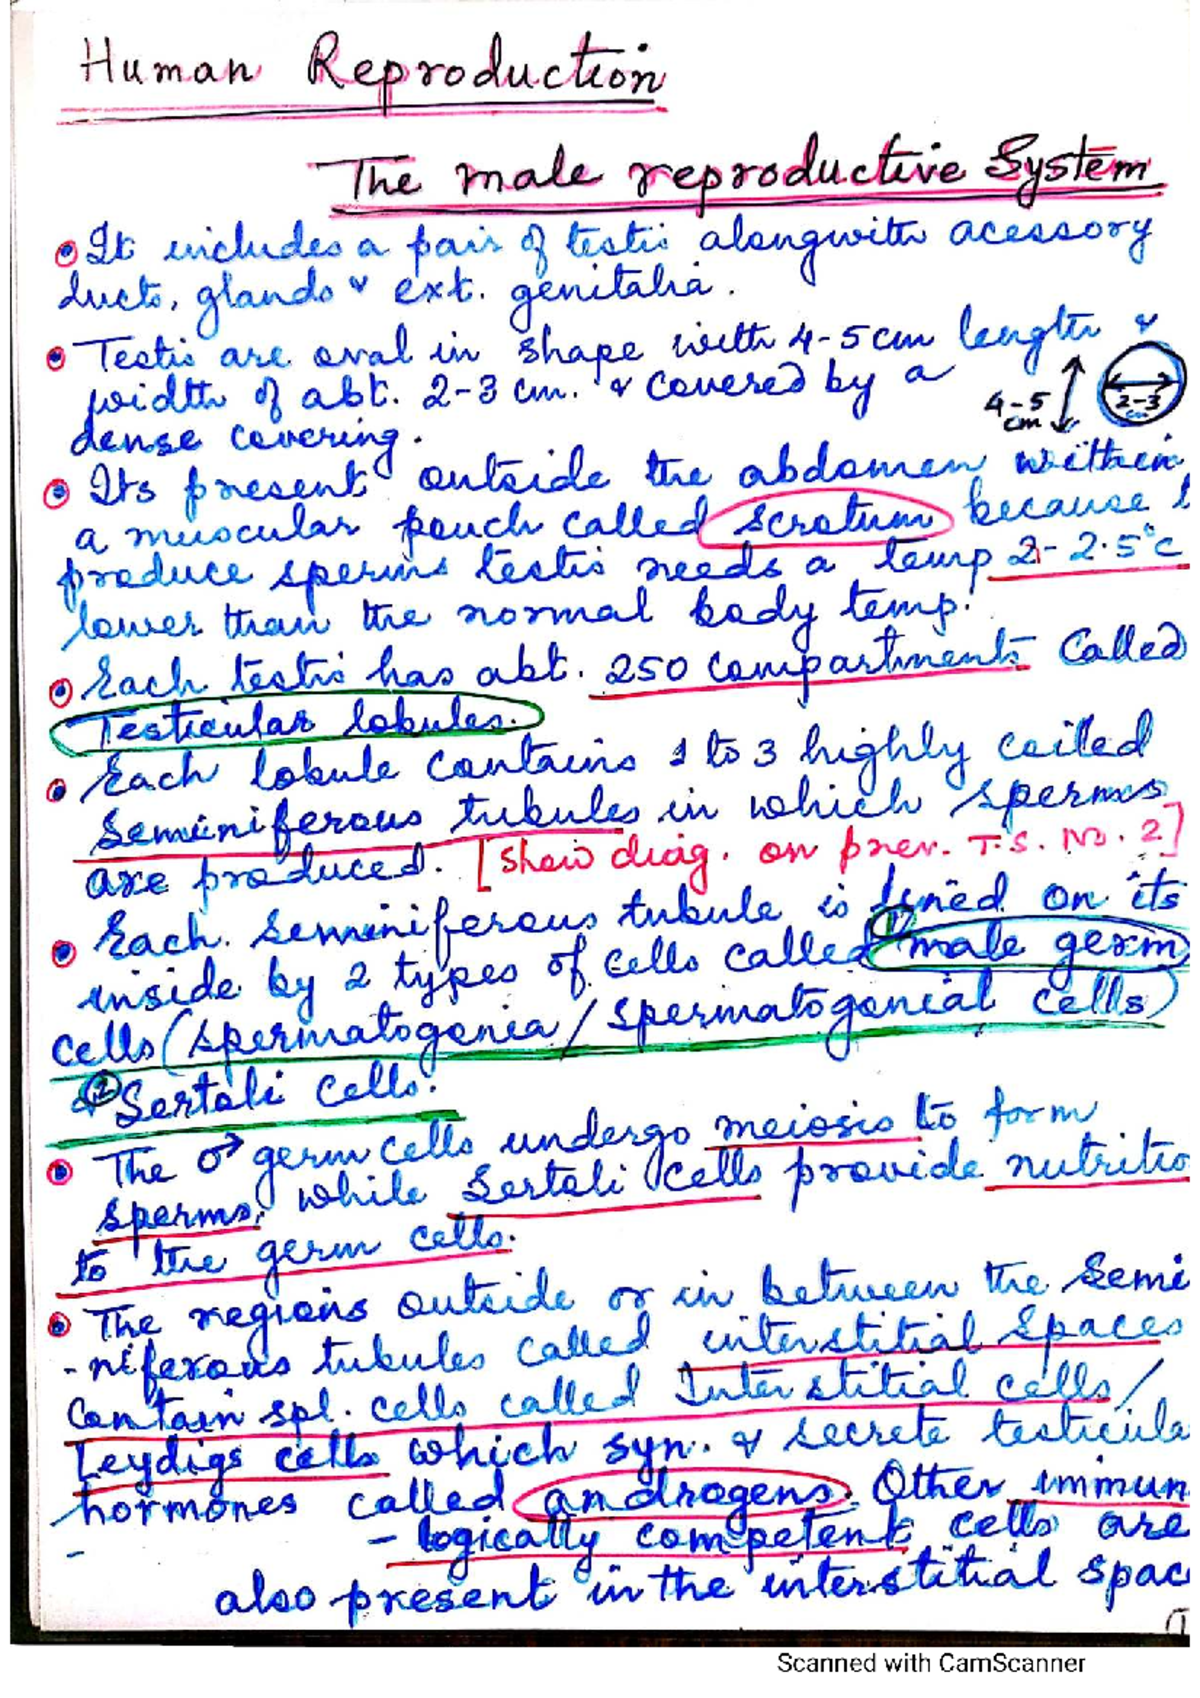 Human Reproduction
The male reproductive System
It includes a pair of testis alongwith acessory
ducts, glands & ext. genitalia.
Testis are oval in shape with 4-5 cm length &
width of abt. 2-3 cm. & covered by a
dense covering.
4-5 cm
2-3 cm
Its present outside the abdomen within
a muscular pouch called scrotum because
produce sperms testis needs a temp 2-2.5°C
lower than the normal body temp.
Each testis has abt. 250 compartments Called
Testicular lobules.
Each lobule contains 1 to 3 highly coiled
Seminiferous tubules in which sperms
are produced. [Show diag. on prev. T.S. No. 2]
Each seminiferous tubule is lined on its
inside by 2 types of cells called ① male germ
cells (spermatogonia/spermatogonial cells)
& ② Sertoli cells.
The ♂ germ cells undergo meiosis to form
sperms, while Sertoli cells provide nutritio
to the germ cells.
The regions outside or in between the Semi
-niferous tubules called interstitial Spaces
Contain spl. cells called Interstitial cells/
Leydigs cells which syn. & secrete testicula
hormones called androgens. Other immun
- logically competent cells are
also present in the interstitial spac
Scanned with CamScanner